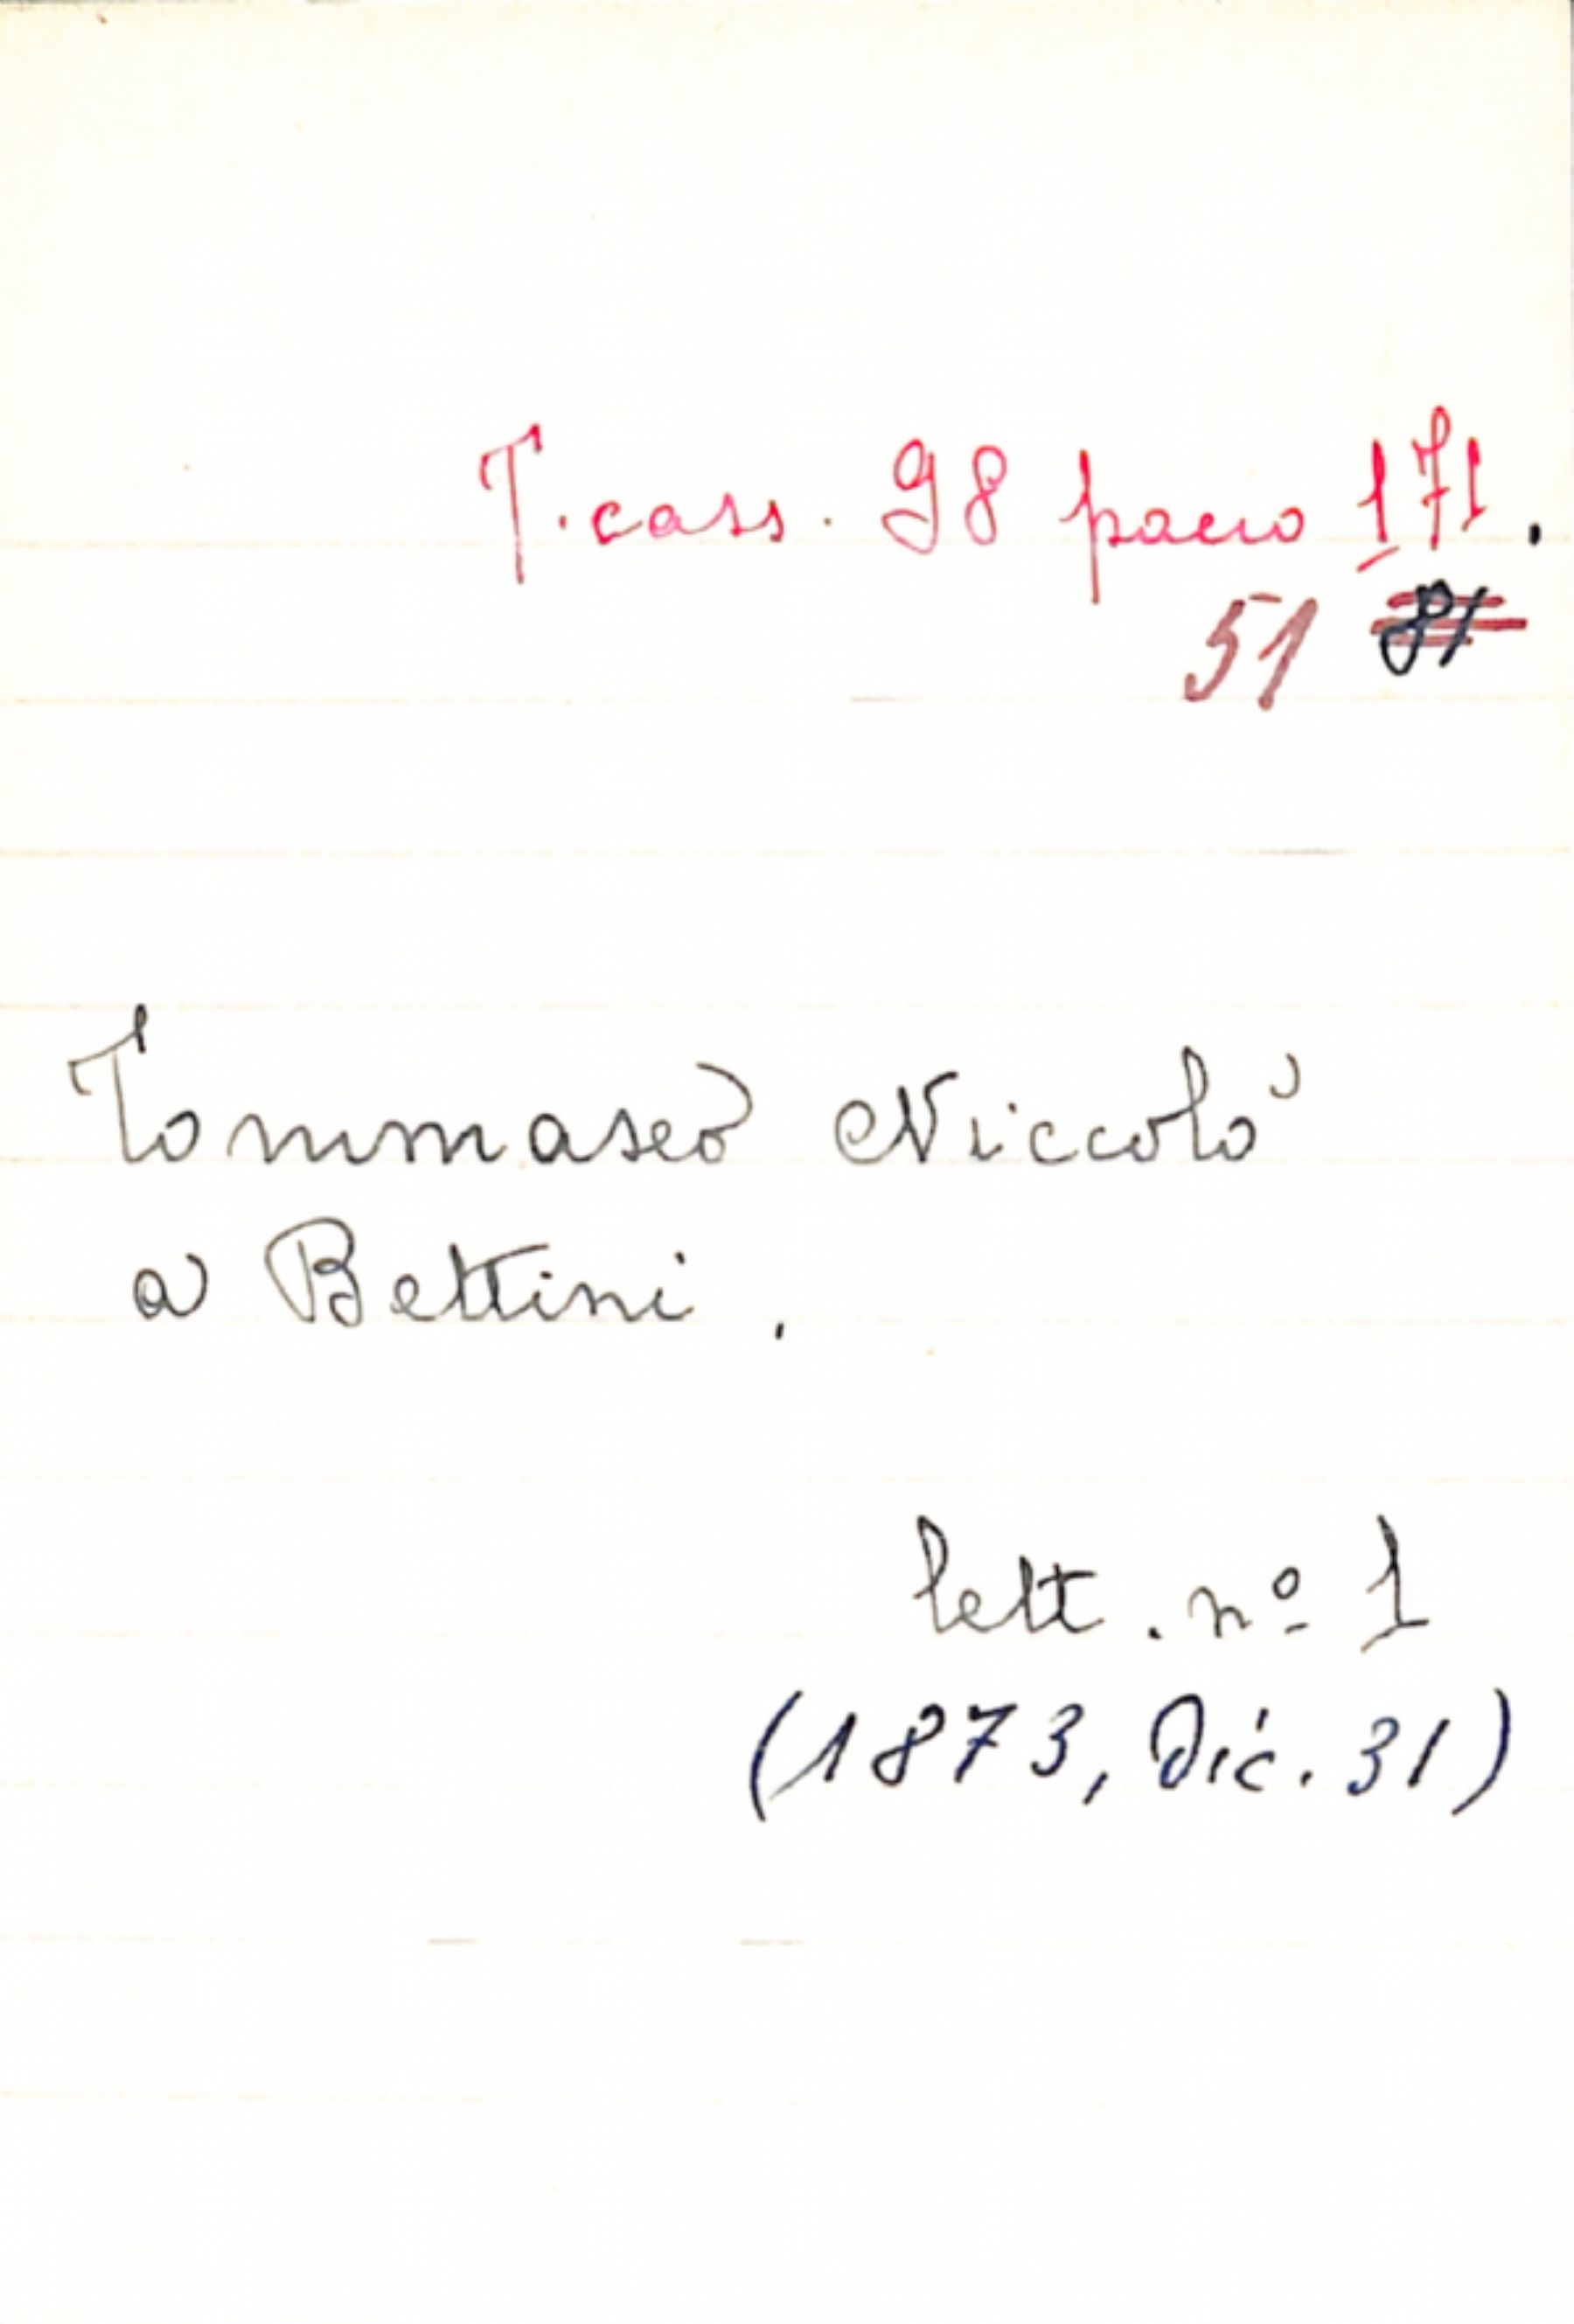 T. cass. 98 pacco 171.
51
Tommaseo Niccolò
a Bettini.
lett. nº 1
(1873, Dic. 31)